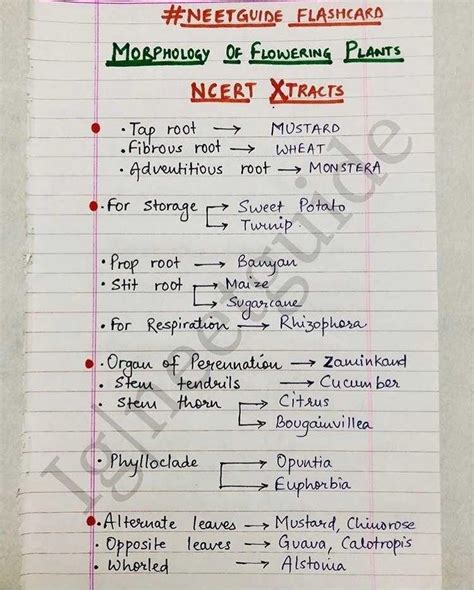 #NEETGUIDE FLASHCARD
MORPHOLOGY OF FLOWERING PLANTS
NCERT XTRACTS
• Tap root → MUSTARD
• Fibrous root → WHEAT
• Adventitious root → MONSTERA
• For Storage → Sweet Potato
→ Turnip
• Prop root → Banyan
• Stit root → Maize
→ Sugarcane
• For Respiration → Rhizophora
• Organ of Perennation → Zaminkand
• Stem tendrils → Cucumber
• Stem thorn → Citrus
→ Bougainvillea
• Phylloclade → Opuntia
→ Euphorbia
• Alternate leaves → Mustard, Chinorose
• Opposite leaves → Guava, Calotropis
• Whorled → Alstonia
Ig|neetguide